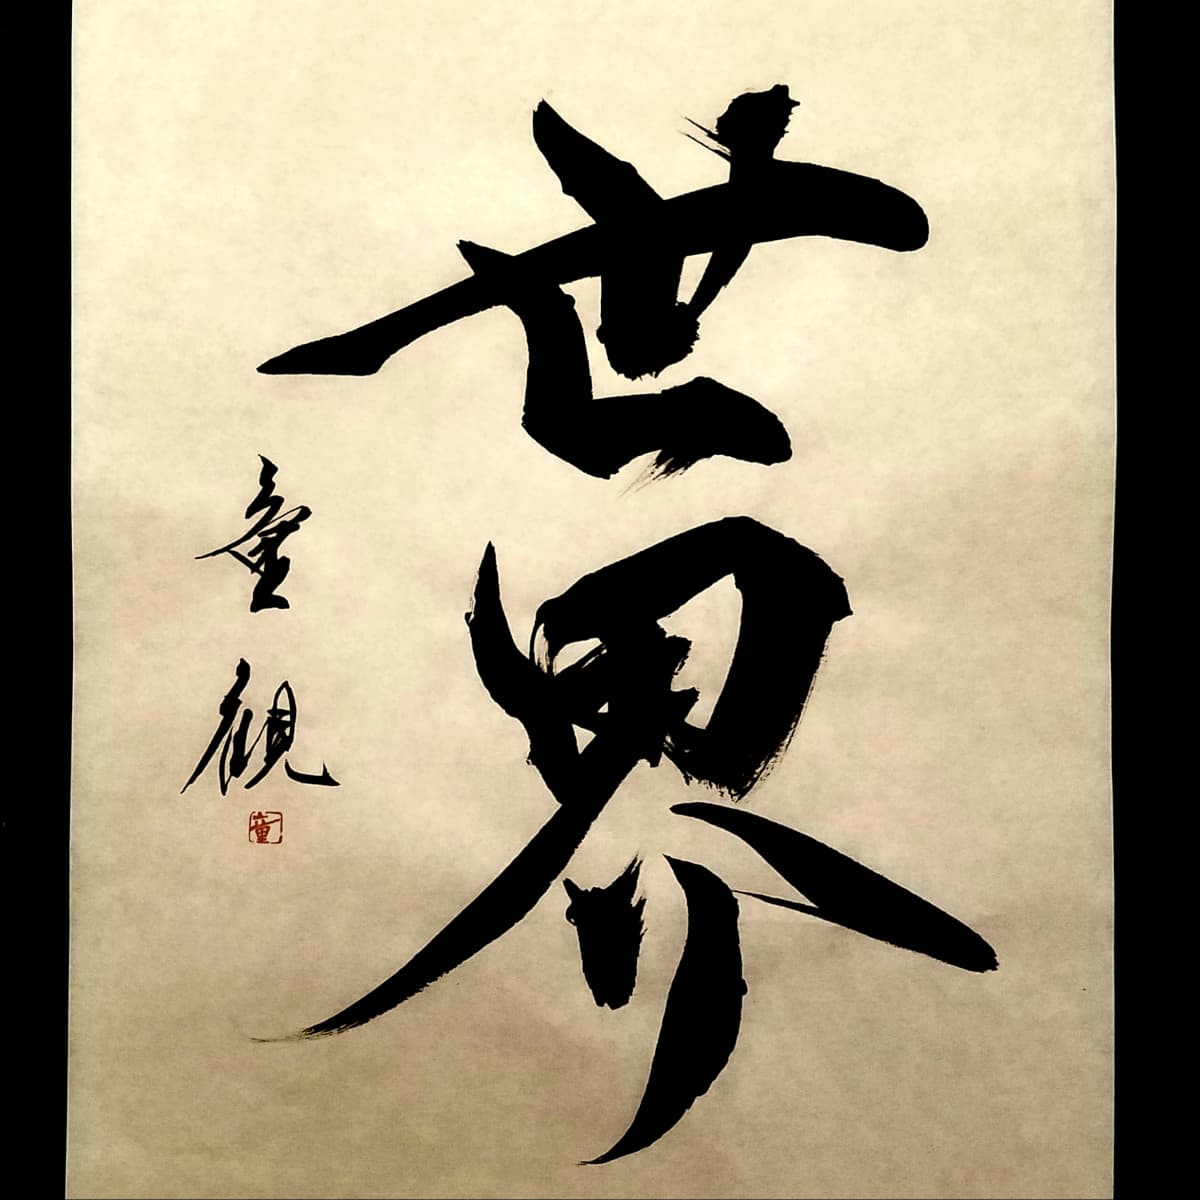 世界
童観
童